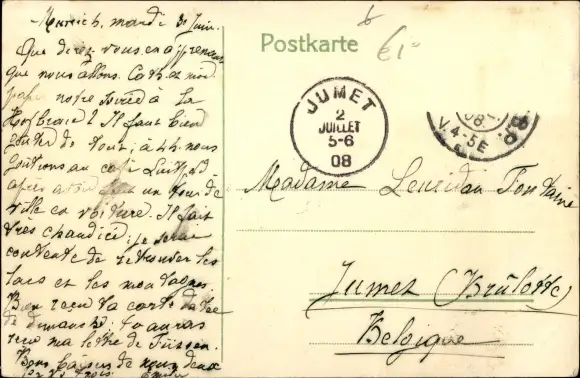 Munich, mardi 30 Juin.
Que direz-vous en apprenant
que nous allons
notre soirée à la
Hofbraü! Il faut bien
goûter de tout; à 4 h. nous
goûtions au café Luitpold
après avoir fait un tour de
ville en voiture. Il fait
très chaud ici; je serai
contente de retrouver les
lacs et les montagnes.
Bien reçu ta carte datée
de dimanche; tu auras
reçu ma lettre de Füssen.
Bons baisers de nous deux
Postkarte
€1-
JUMET
2
JUILLET
5-6
08
08
V 4-5E
Madame Leurident Fontaine
Jumet (Brûlotte)
Belgique